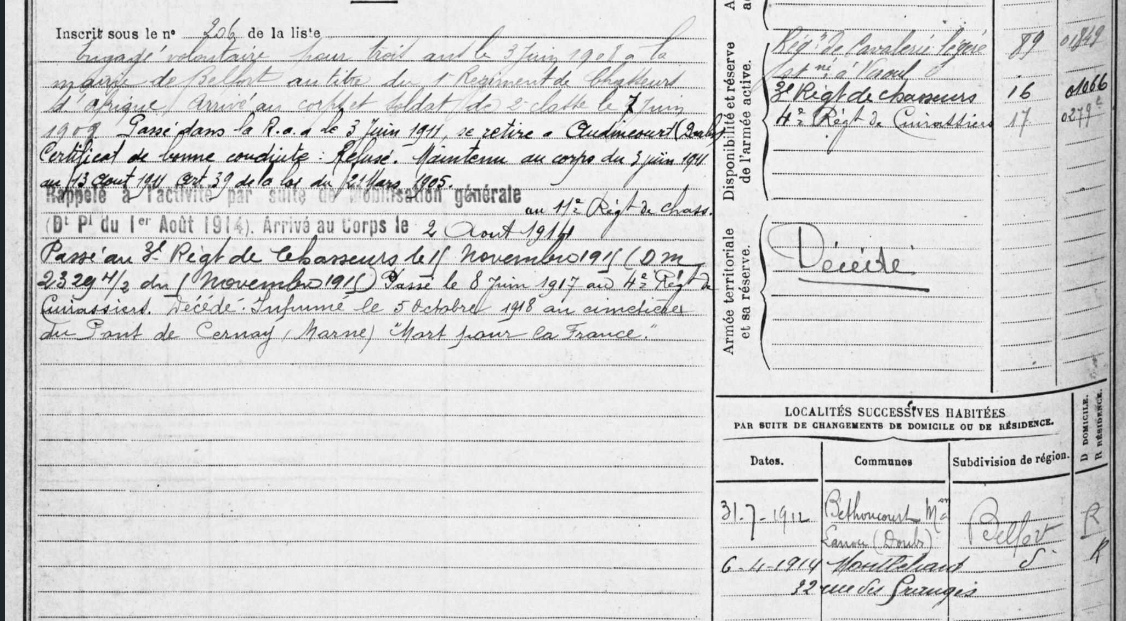 Inscrit sous le n° 206 de la liste
Engagé volontaire pour trois ans le 3 Juin 1908 à la
mairie de Belfort au titre du 1 Régiment de Chasseurs
d'Afrique, arrivé au corps et soldat de 2e classe le 7 Juin
Passé dans la R. a. a le 3 Juin 1911, se retire à Audincourt (Doubs)
Certificat de bonne conduite : Refusé. Maintenu au corps du 3 juin 1911
au 13 Aout 1911 Art 39 de la loi du 21 Mars 1905.
Rappelé à l'activité par suite de mobilisation générale
au 11e Régt de Chass.
(Dt Pl du 1er Août 1914). Arrivé au Corps le 2 Aout 1914
Passé au 3e Régt de Chasseurs le 15 Novembre 1915 (D.M
23294/2 du 5 Novembre 1915) Passé le 8 Juin 1917 au 4e Régt de
Cuirassiers. Décédé. Inhumé le 5 Octobre 1918 au cimetière
du Pont de Cernay (Marne) "Mort pour la France."
Disponibilité et réserve
de l'armée active.
Régt de Cavalerie légère 89
3e Régt de chasseurs 16
4e Régt de Cuirassiers 17
Armée territoriale
et sa réserve.
Décédé
LOCALITÉS SUCCESSIVES HABITÉES
PAR SUITE DE CHANGEMENTS DE DOMICILE OU DE RÉSIDENCE.
Dates. Communes Subdivision de région. D DOMICILE.
R RÉSIDENCE.
31-7-1912 Bethoncourt Belfort R
(Doubs)
6-4-1914 Montbéliard R
32 rue des Granges